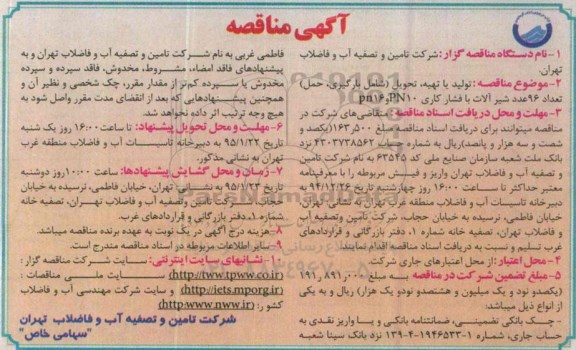 آگهی مناقصه
۱-نام دستگاه مناقصه گزار: شرکت تامین و تصفیه آب و فاضلاب
تهران.
۲-موضوع مناقصه: تولید یا تهیه، تحویل (شامل بارگیری، حمل)
تعداد ۹۶عدد شیر آلات با فشار کاری PN۱۰ و pn۱۶
۳- مهلت و محل دریافت اسناد مناقصه: متقاضی‌های شرکت در
مناقصه میتوانند برای دریافت اسناد مناقصه مبلغ ۱۶۳,۵۰۰(یکصد و
شصت و سه هزار و پانصد)ریال به شماره حساب ۴۲۰۷۳۸۵۶۲ نزد
بانک ملت شعبه سازمان صنایع ملی کد ۶۳۵۴۵ به نام شرکت تامین
و تصفیه آب و فاضلاب تهران واریز و فیش مربوطه را با معرفینامه
معتبر حداکثر تا ساعت ۱۶:۰۰ روز چهارشنبه تاریخ ۹۴/۱۲/۲۶ به
دبیرخانه تاسیسات آب و فاضلاب منطقه غرب تهران به نشانی تهران،
خیابان فاطمی، نرسیده به خیابان حجاب، شرکت تامین وتصفیه آب
و فاضلاب تهران، تصفیه خانه شماره ۱، دفتر بازرگانی و قراردادهای
غرب تسلیم و نسبت به دریافت اسناد مناقصه اقدام نمایند.
۴-محل اعتبار: از محل اعتبارهای جاری شرکت.
۵-مبلغ تضمین شرکت در مناقصه به مبلغ ۱۹۱,۸۹۱,۰۰۰
(یکصدو نود و یک میلیون و هشتصدو نودو یک هزار) ریال و به یکی
از انواع ذیل میباشد:
- چک بانکی تضمینی، ضمانتنامه بانکی و یا واریز نقدی به
حساب جاری، شماره ۱-۱۹۴۶۵۳۳-۴-۱۳۹ نزد بانک سینا شعبه
فاطمی غربی به نام شرکت تامین و تصفیه آب و فاضلاب تهران و به
پیشنهادهای فاقد امضاء، مشروط، مخدوش، فاقد سپرده و سپرده
مخدوش یا سپرده کم‌تر از مقدار مقرر، چک شخصی و نظیر آن و
همچنین پیشنهادهایی که بعد از انقضای مدت مقرر واصل شود به
هیچ وجه ترتیب اثر داده نخواهد شد.
۶- مهلت و محل تحویل پیشنهاد: تا ساعت ۱۶:۰۰ روز یک شنبه
تاریخ ۹۵/۱/۲۲ به دبیرخانه تاسیسات آب و فاضلاب منطقه غرب
تهران به نشانی مذکور.
۷- زمان و محل گشایش پیشنهادها: ساعت ۱۰:۰۰ روز دوشنبه
تاریخ ۹۵/۱/۲۳ به نشانی تهران، خیابان فاطمی، نرسیده به خیابان
حجاب، شرکت تامین وتصفیه آب و فاضلاب تهران، تصفیه خانه
شماره ۱، دفتر بازرگانی و قراردادهای غرب.
۸-هزینه درج آگهی در یک نوبت به عهده برنده مناقصه میباشد.
۹-سایر اطلاعات مربوطه در اسناد مناقصه مندرج است.
۱۰- نشانیهای سایت اینترنتی: سایت شرکت مناقصه گزار:
(http://tww.tpww.co.ir) سایت ملی مناقصات:
(http://iets.mporg.ir) و سایت شرکت مهندسی آب و فاضلاب
کشور: (http:www.nww.ir)
شرکت تامین و تصفیه آب و فاضلاب تهران
"سهامی خاص"